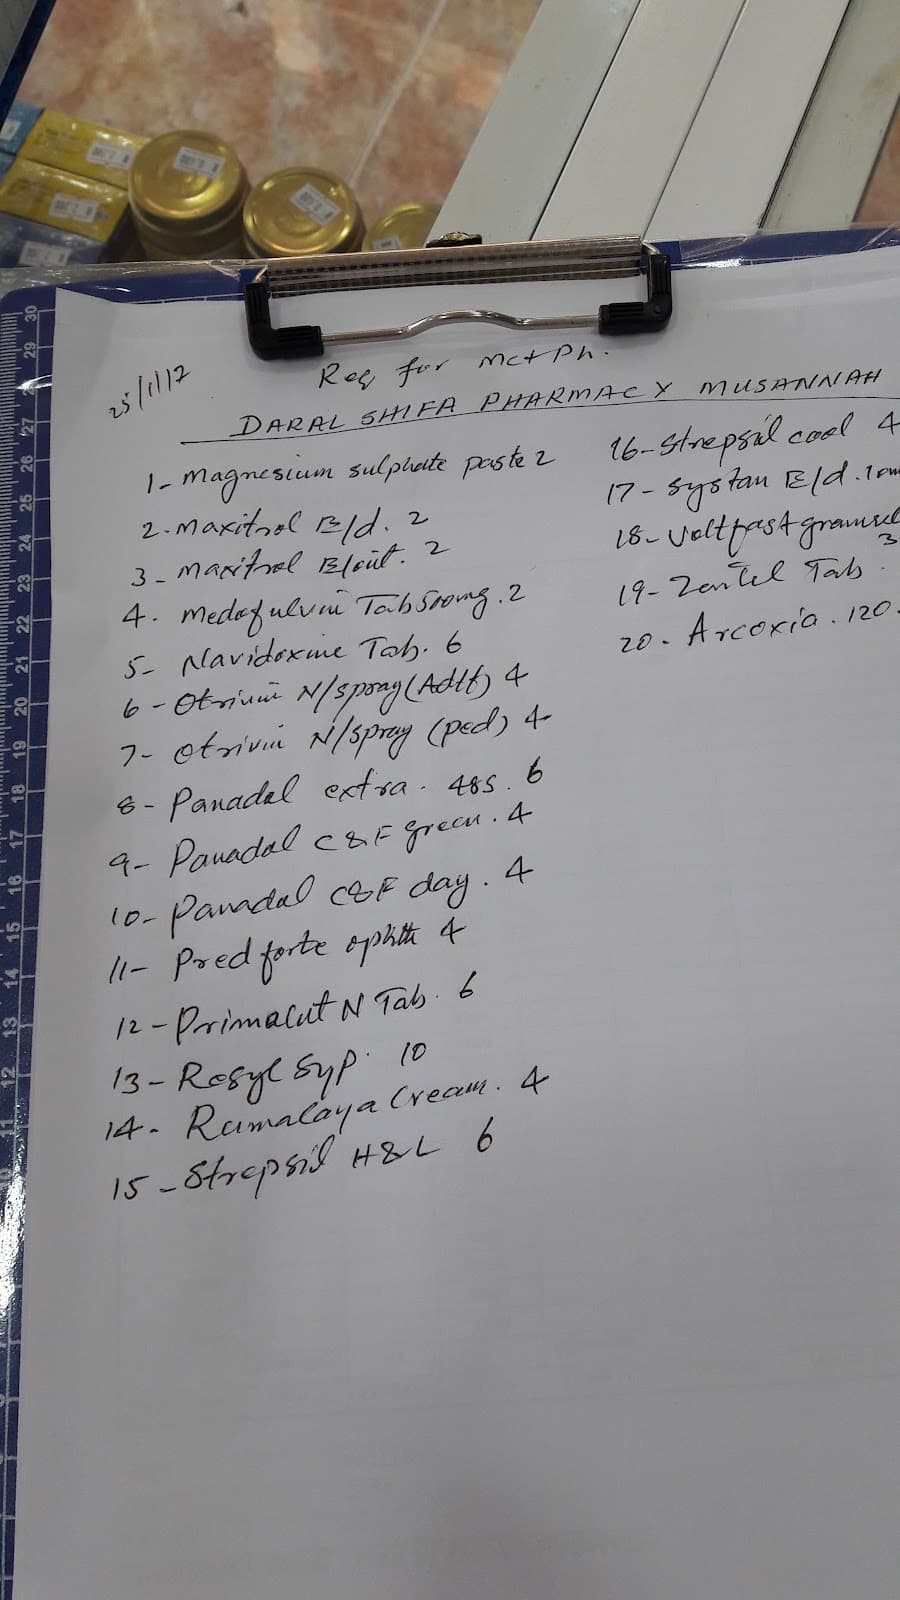 25/1/17
Req for Mct Ph.
DARAL SHIFA PHARMACY MUSANNAH
1- Magnesium sulphate paste 2
2. Maxitrol E/d. 2
3- Maxitrol E/oint. 2
4. Medofulvin Tab 500mg. 2
5- Navidoxine Tab. 6
6- Otrivin N/spray (Adlt) 4
7- Otrivin N/spray (ped) 4
8- Panadol extra. 48s. 6
9- Panadol C&F green. 4
10- Panadol C&F day. 4
11- Pred forte ophth 4
12- Primolut N Tab. 6
13- Resyl Syp. 10
14. Rumalaya Cream. 4
15- Strepsil H&L 6
16- Strepsil cool 4
17- Systan E/d. 10m
18- Voltfast granuel
19- Zentel Tab. 3
20- Arcoxia. 120.
30
29
27
26
25
24
23
22
21
20
19
18
17
16
15
14
13
12
11